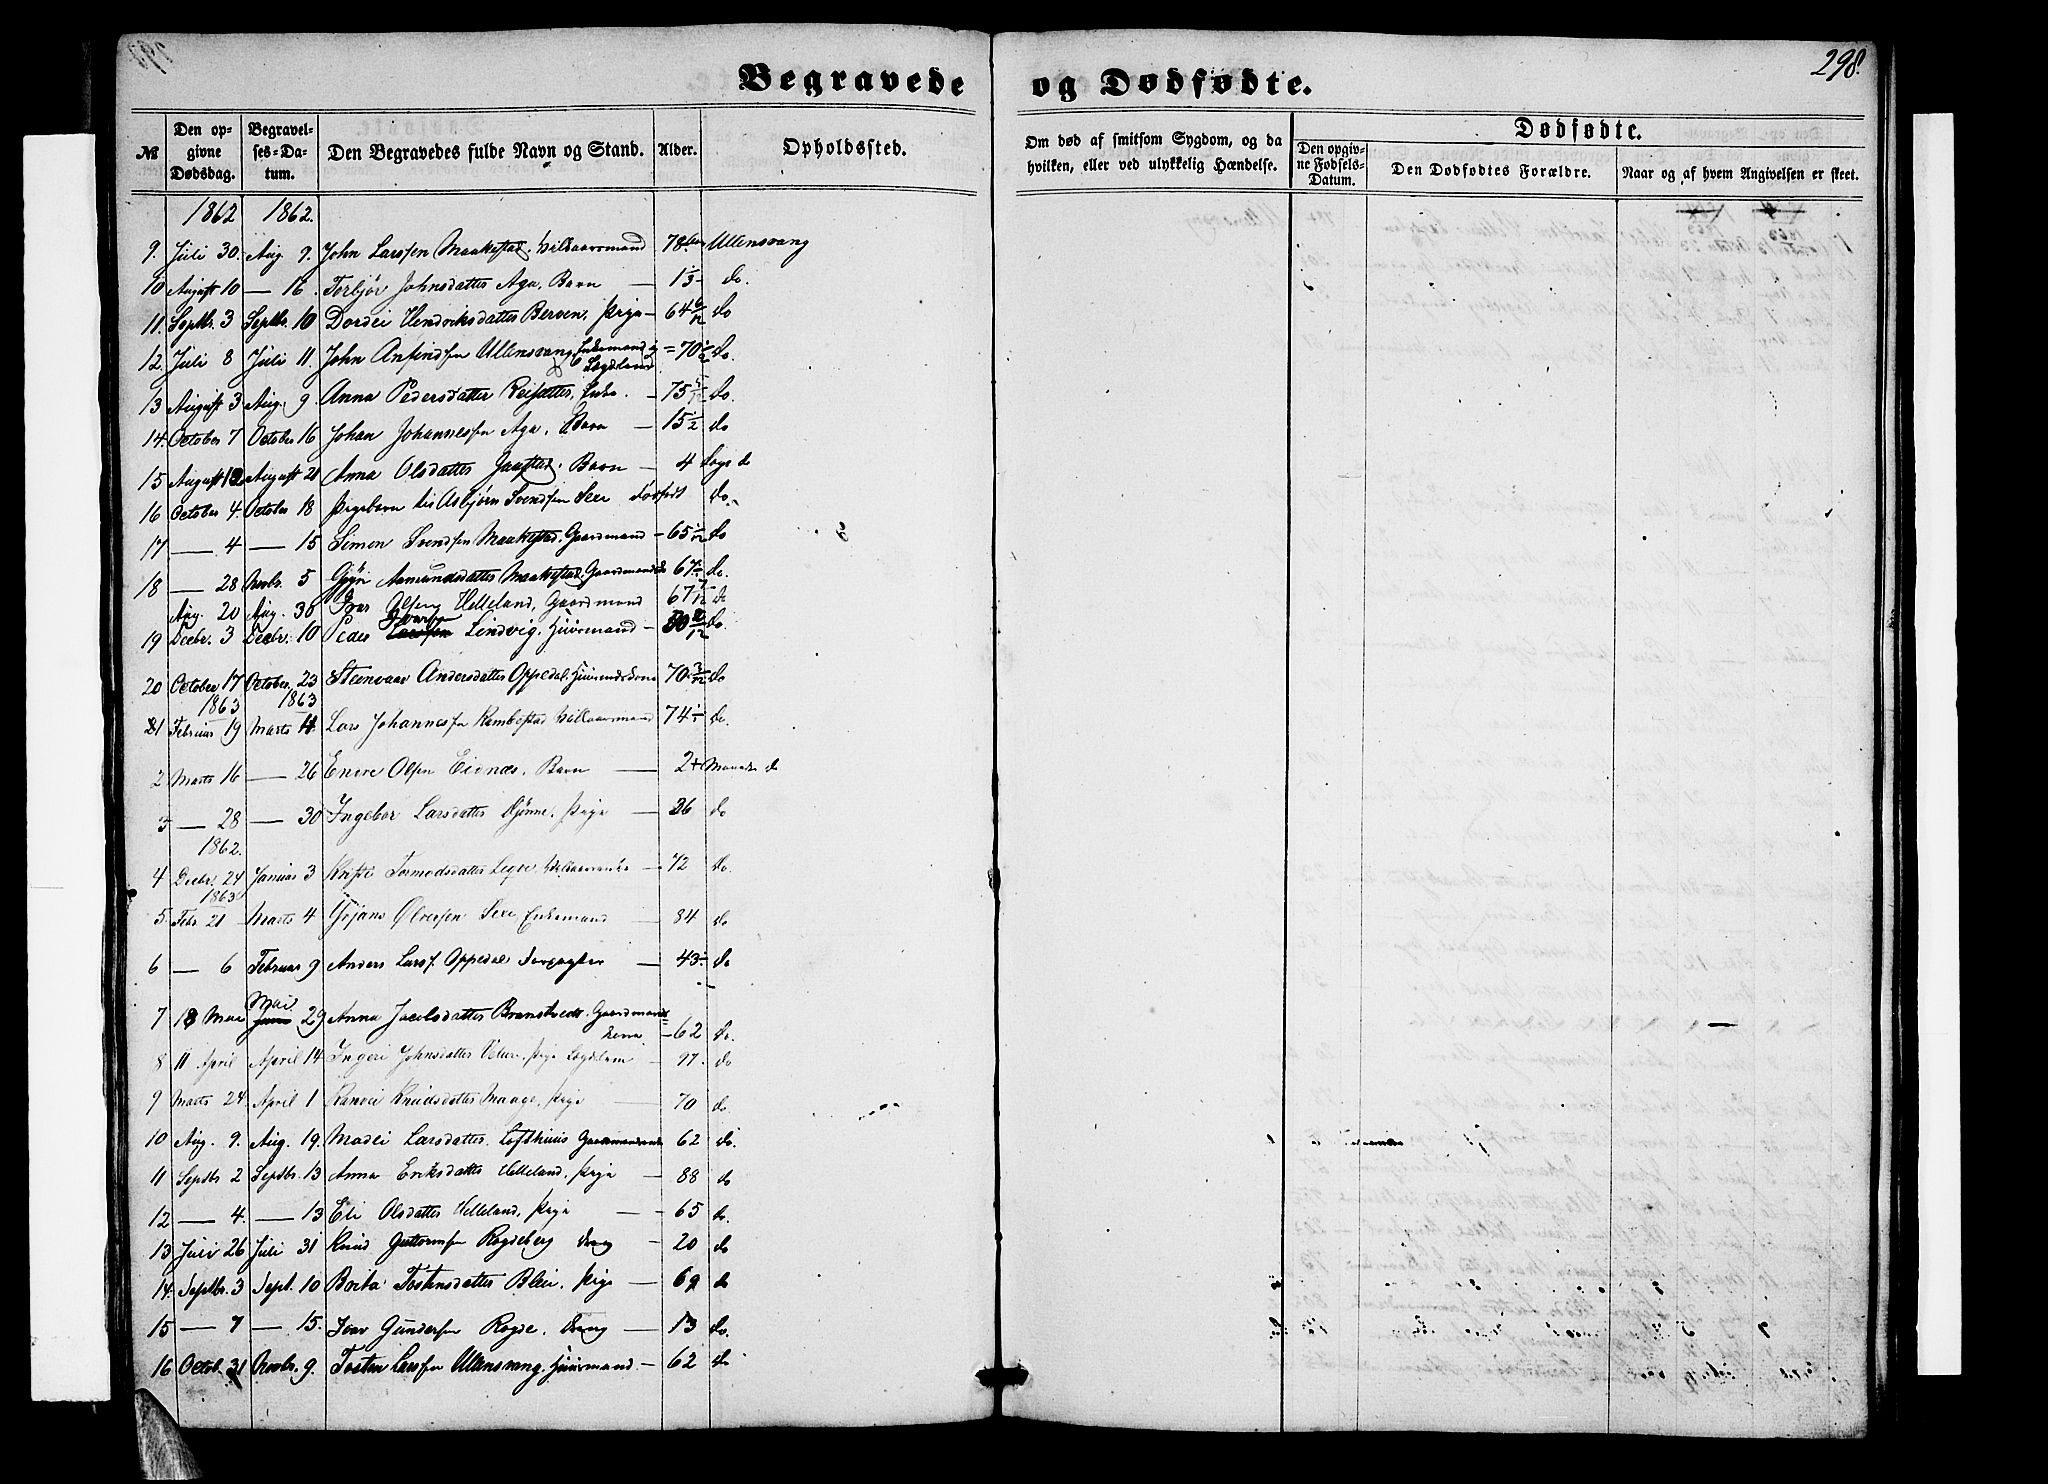 298.
Begravede og Dødfødte.
№ Den opgivne Dødsdag. Begravelses-Datum. Den Begravedes fulde Navn og Stand. Alder. Opholdssted. Om død af smitsom Sygdom, og da hvilken, eller ved ulykkelig Hændelse. Dødfødte. Den opgivne Fødsels-Datum. Den Dødfødtes Forældre. Naar og af hvem Angivelsen er skeet.
1862 1862.
9. Juli 30. Aug 9. John Larssen Maakestad. Vilkaarsmand 78 Ullensvang
10 August 10 — 16. Torbjør Johnsdatter Aga, Barn — 1 do.
11. Septbr. 3 Septbr. 10 Dordei Hendriksdatter Berven, Pige — 64 6/12 do
12. Juli 8 Juli 11. John Anfindsen Ullensvang, Enkemand og Lægdslem = 70 1/2 do.
13 August 3 Aug. 9 Anna Pedersdatter Reisæter, Enke. — 75 do.
14. October 7 October 16 Johan Johannessen Aga, Barn — 15 1/2 do
15 August 12 August 21 Anna Olsdatter Jaastad. Barn — 4 Dage do
16 October 4. October 18 Pigebarn til Asbjørn Svendsen Sexe dødfødt do.
17 — 4 — 15 Simon Svendsen Maakestad, Gaardmand — 65 1/12 do
18 — 28 Novbr. 5 Gyri Aamundsdatter Maakestad. Gaardmandsk 67 do.
Aug. 20 Aug. 30 Ivar Helleland, Gaardmand 67 7/12 do
19 Decbr. 3 Decbr. 10 Peder Ivarsen Lindvig, Huusmand — 50 do.
20 October 17 October 23 Steenvaar Andersdatter Oppedal. Huusmandskone 70 3/12 do
1863 1863
21 Februar 19 Marts 4. Lars Johannessen Kambestad Vilkaarsmand 74 do.
2 Marts 16 — 26 Endre Olsen Eidnæs, Barn — 2 Maaneder do
3 — 28 — 30 Ingebor Larsdatter Djønne, Pige — 26 do
1862.
4 Decbr. 24 Januar 3 Kristi Tormodsdatter Legre Vilkaarsenke — 72 do.
1863
5 Febr 21 Marts 4 Ørjans Ølversen Sexe Enkemand — 84 do
6 — 6 Februar 9 Anders Larss. Oppedal Forpagter — 43 do
7 18 Mai Mai 29 Anna Jacobsdatter Branstvedt. Gaardmands Kone — 62 do.
8 11 April April 14 Ingeri Johnsdatter Velure, Pige Lægdslem — 97. do
9 Marts 24. April 1 Ranvei Knudsdatter Maage, Pige — 70 do.
10 Aug. 9. Aug. 19. Madei Larsdatter. Lofthuus Gaardmandsenke 62 do.
11 Septbr 2 Septbr. 13 Anna Eriksdatter Helleland, Pige — 88 do
12 — 4. — 13 Eli Olsdatter Helleland, Pige — 65 do.
13 Juli 26 Juli 31 Knud Guttormsen Rogdeberg Dreng — 20 do
14. Septbr. 3 Sept. 10 Brita Tostensdatter Bleie, Pige — 69 do
15 — 7 — 15. Ivar Gundersen Rogde, Dreng — 13 do.
16 Octob. 31 Novbr. 9. Tosten Larssen Ullensvang, Huusmand — 62 do